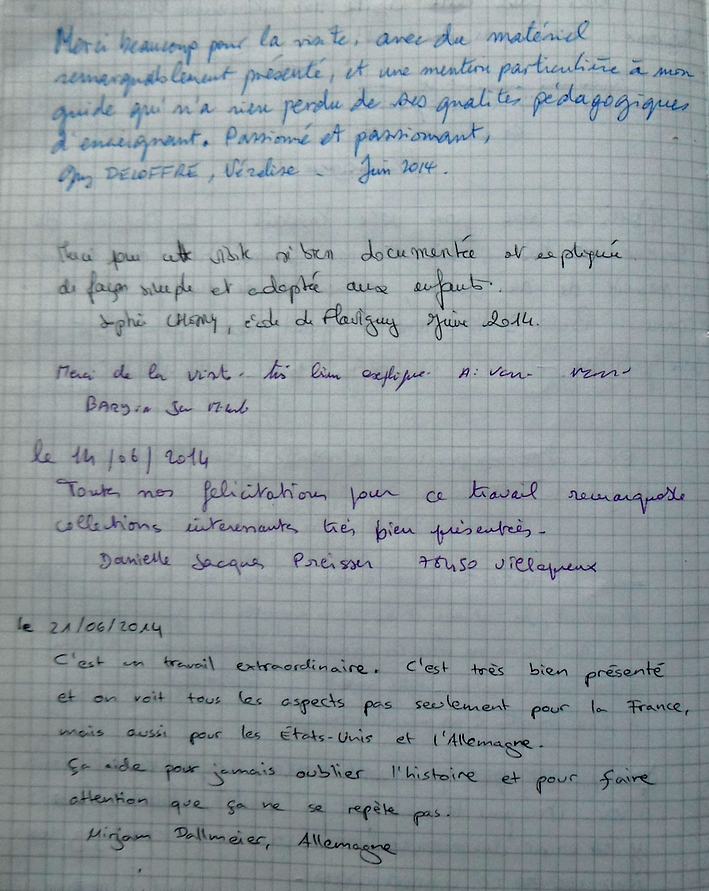 Merci beaucoup pour la visite, avec du matériel
remarquablement présenté, et une mention particulière à mon
guide qui n'a rien perdu de ses qualités pédagogiques
d'enseignant. Passionné et passionnant,
Guy DELOFFRE, Vézelise - Juin 2014.
Merci pour cette visite si bien documentée et expliquée
de façon simple et adaptée aux enfants.
Sophie CHERY, école de Flavigny Juin 2014.
Merci de la visite. très bien explique.
le 14/06/2014
Toutes nos felicitations pour ce travail remarquable
collections interessantes très bien présentées -
Danielle Jacques Preisser
le 21/06/2014
C'est un travail extraordinaire. C'est très bien présenté
et on voit tous les aspects pas seulement pour la France,
mais aussi pour les États-Unis et l'Allemagne.
Ça aide pour jamais oublier l'histoire et pour faire
attention que ça ne se repète pas.
Mirjam Dallmeier, Allemagne